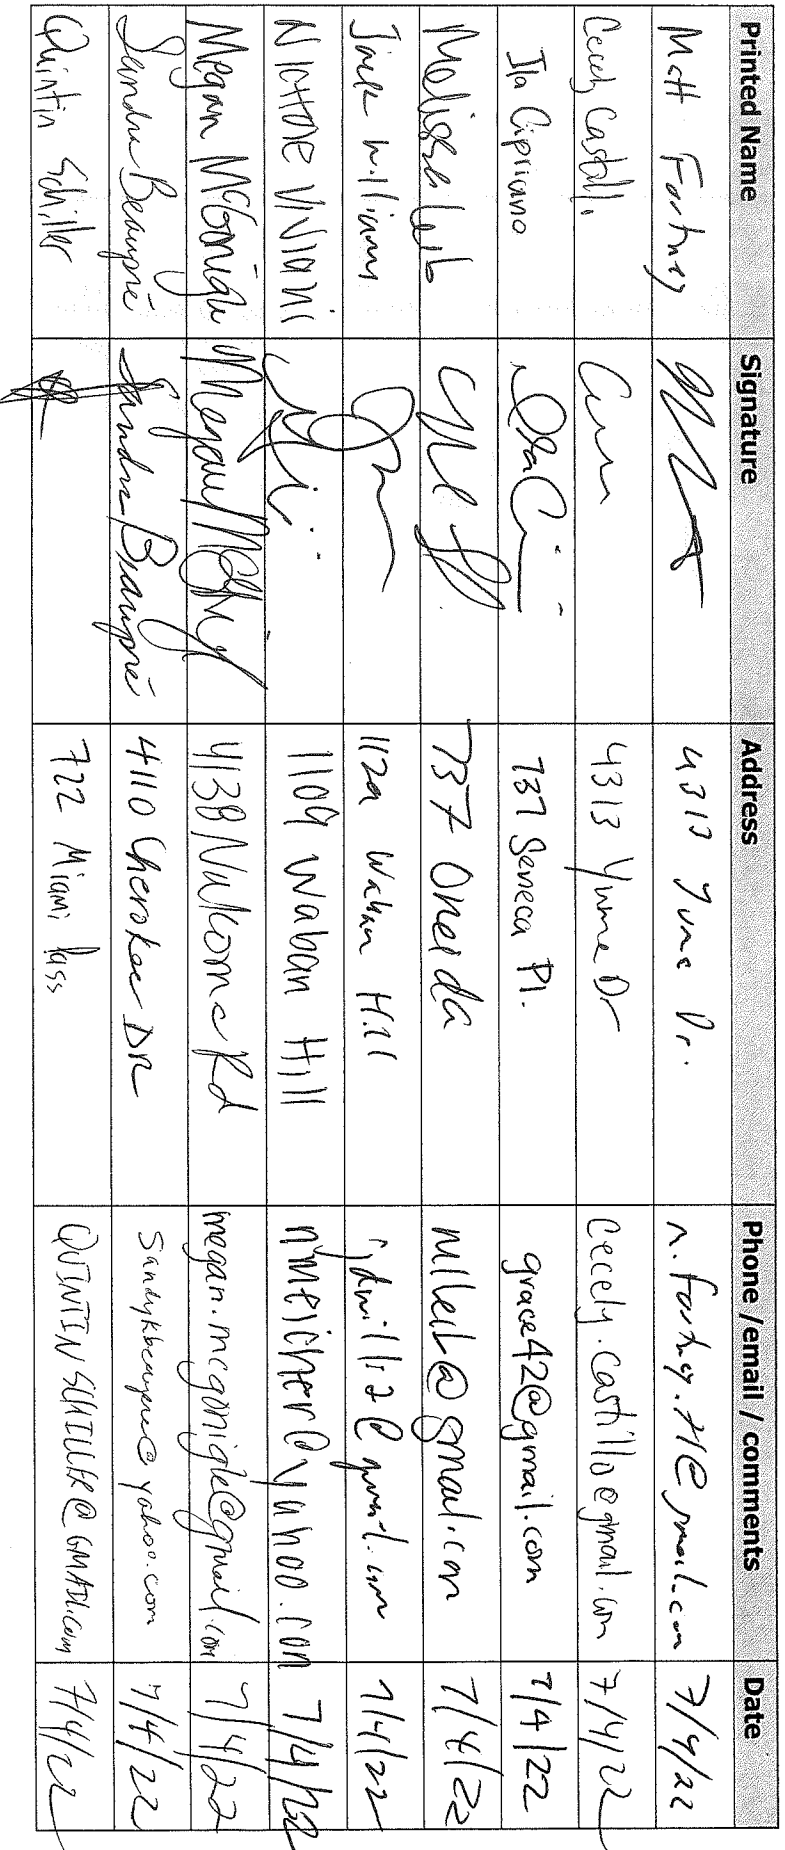 Printed Name Signature Address Phone / email / comments Date
Matt Fortney 4313 Yuma Dr. 7/4/22
Cecely Castillo 4313 Yuma Dr cecely.castillo@gmail.com 7/4/22
Ila Cipriano Ila Ci 737 Seneca Pl. grace42@gmail.com 7/4/22
Melissa Leib 737 Oneida mlleib@gmail.com 7/4/22
Williams 1129 Waban Hill 7/4/22
Nichole Viviani 1109 Waban Hill nmeicher@yahoo.com 7/4/22
Megan McGonigle Megan McGonigle 4138 Nakoma Rd megan.mcgonigle@gmail.com 7/4/22
Sandra Beaupré Sandra Beaupré 4110 Cherokee DR 7/4/22
Quintin Schiller 722 Miami Pass QUINTINSCHILLER@GMAIL.com 7/4/22